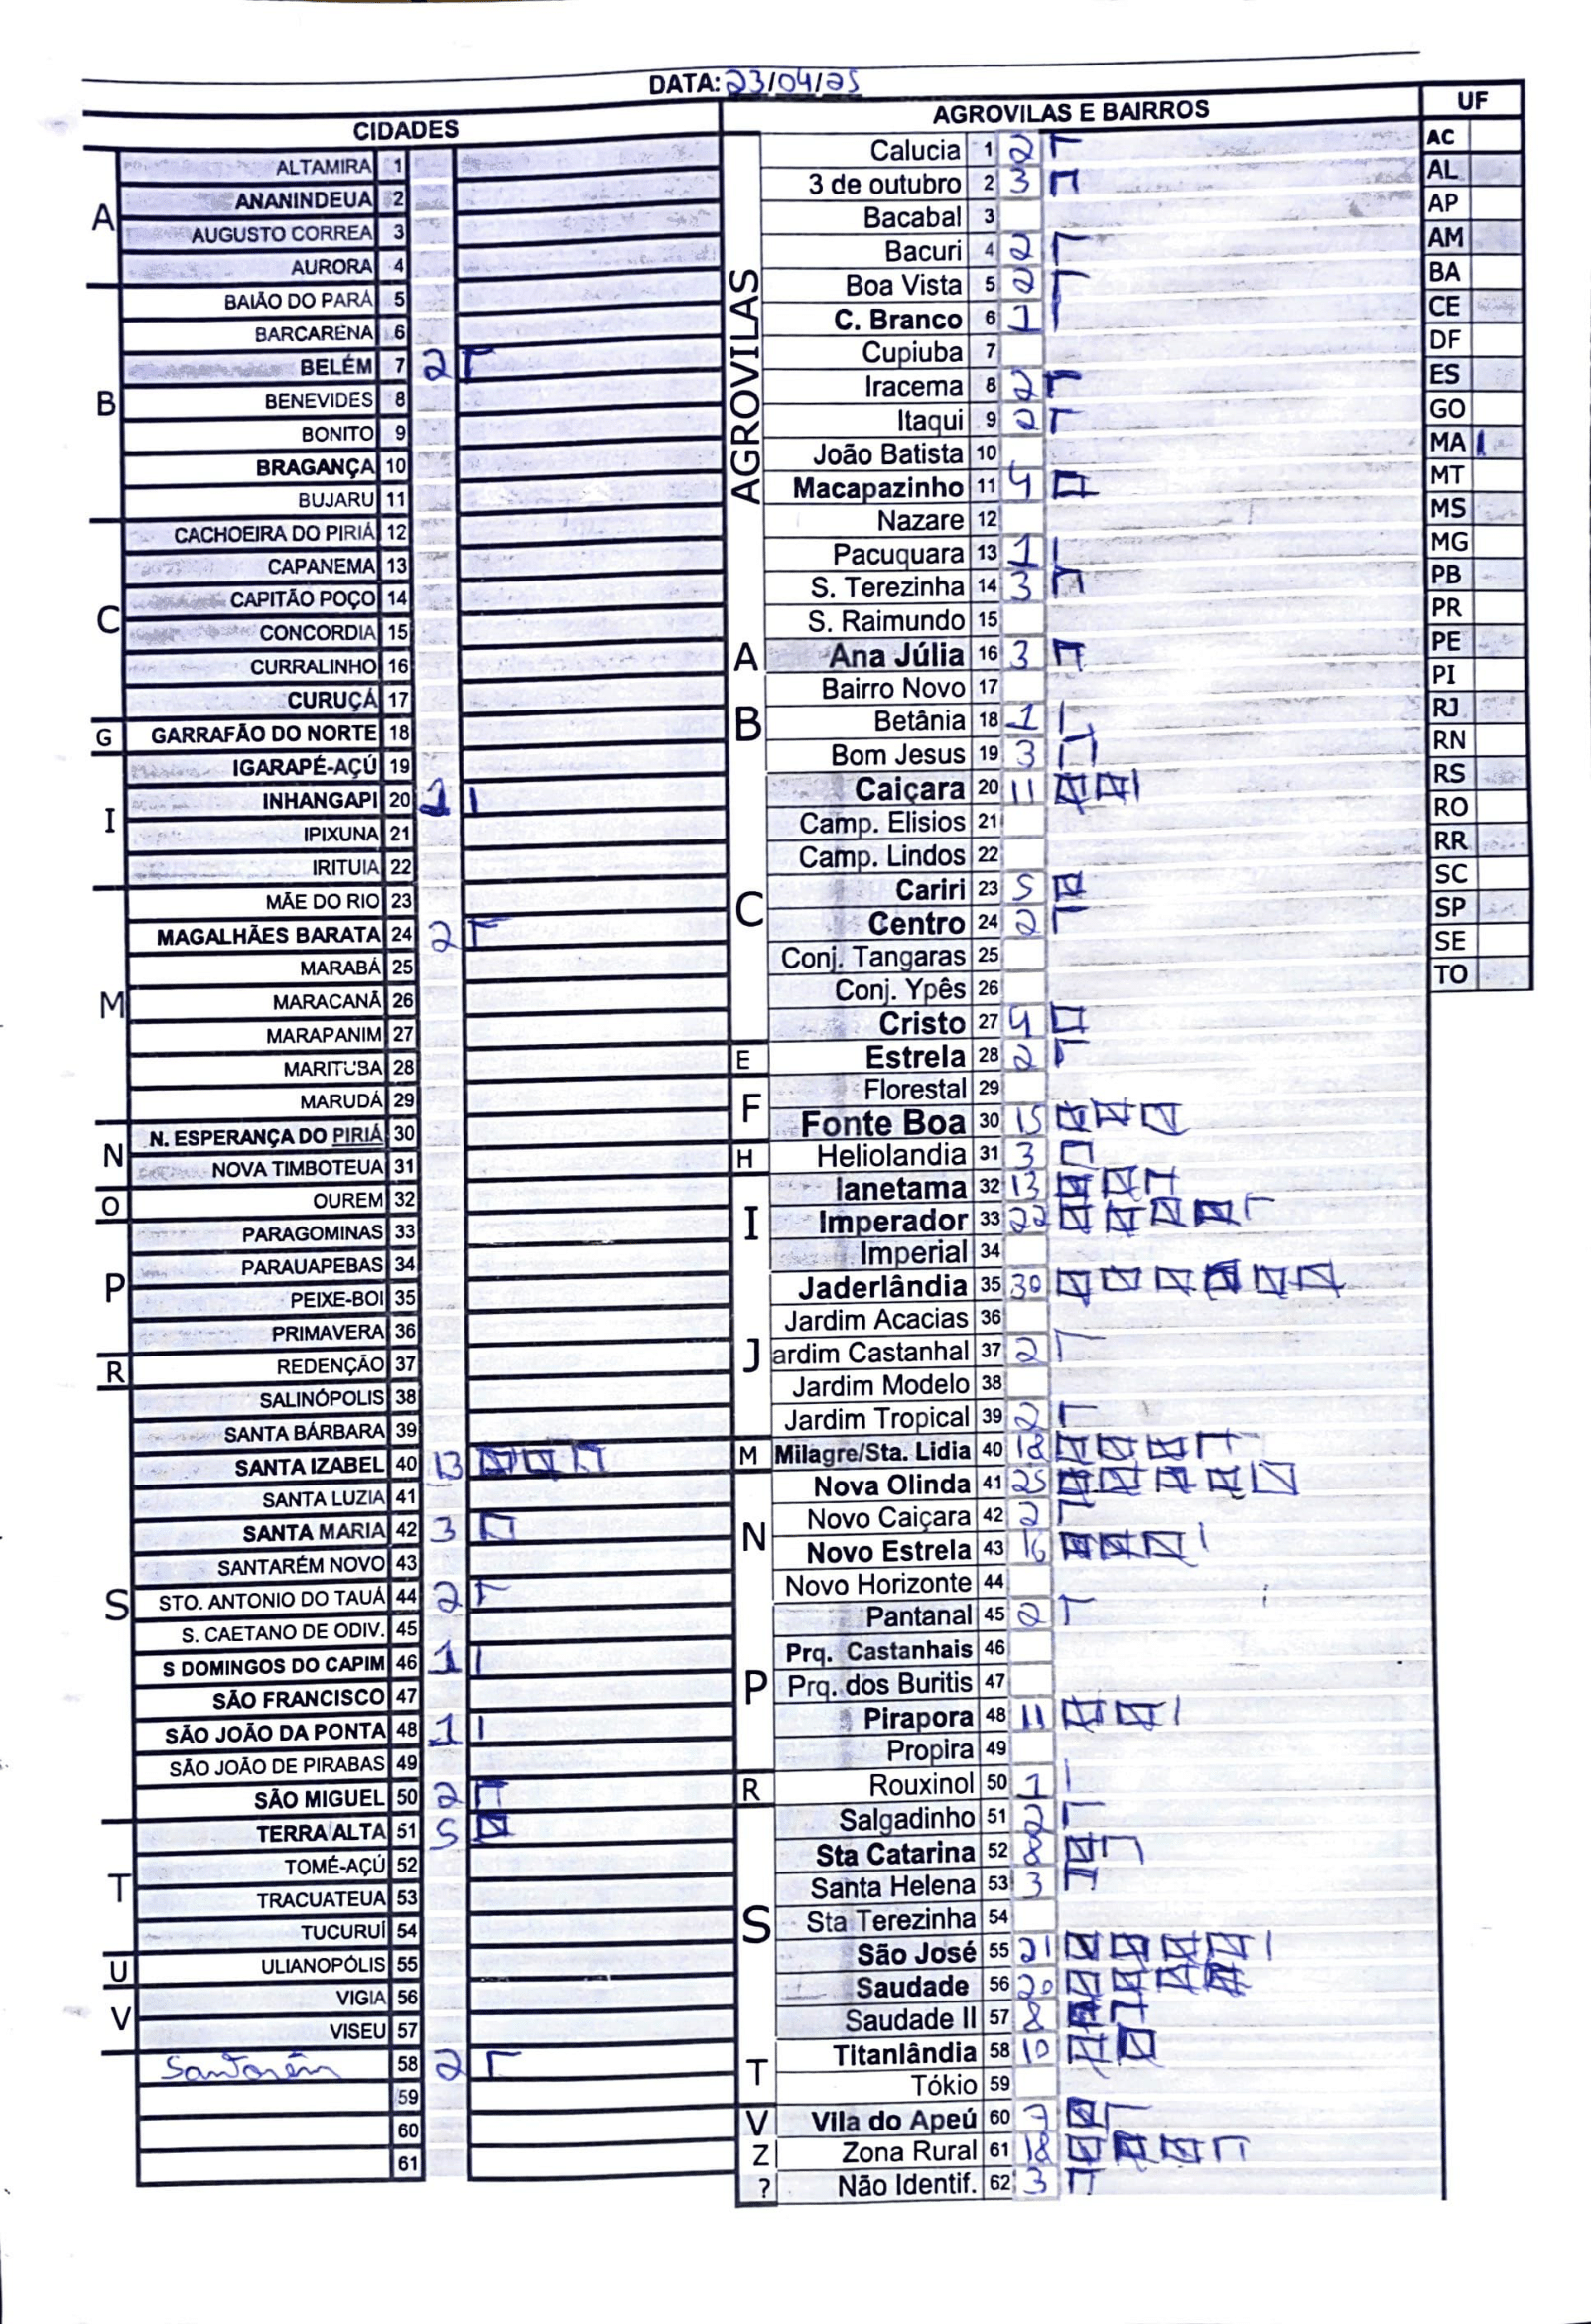 DATA: 23/04/25
CIDADES
A
ALTAMIRA 1
ANANINDEUA 2
AUGUSTO CORREA 3
AURORA 4
B
BAIÃO DO PARÁ 5
BARCARENA 6
BELÉM 7 2
BENEVIDES 8
BONITO 9
BRAGANÇA 10
BUJARU 11
C
CACHOEIRA DO PIRIÁ 12
CAPANEMA 13
CAPITÃO POÇO 14
CONCORDIA 15
CURRALINHO 16
CURUÇÁ 17
G
GARRAFÃO DO NORTE 18
I
IGARAPÉ-AÇÚ 19
INHANGAPI 20 1
IPIXUNA 21
IRITUIA 22
M
MÃE DO RIO 23
MAGALHÃES BARATA 24 2
MARABÁ 25
MARACANÃ 26
MARAPANIM 27
MARITUBA 28
MARUDÁ 29
N
N. ESPERANÇA DO PIRIÁ 30
NOVA TIMBOTEUA 31
O
OUREM 32
P
PARAGOMINAS 33
PARAUAPEBAS 34
PEIXE-BOI 35
PRIMAVERA 36
R
REDENÇÃO 37
S
SALINÓPOLIS 38
SANTA BÁRBARA 39
SANTA IZABEL 40 13
SANTA LUZIA 41
SANTA MARIA 42 3
SANTARÉM NOVO 43
STO. ANTONIO DO TAUÁ 44 2
S. CAETANO DE ODIV. 45
S DOMINGOS DO CAPIM 46 1
SÃO FRANCISCO 47
SÃO JOÃO DA PONTA 48 1
SÃO JOÃO DE PIRABAS 49
SÃO MIGUEL 50 2
T
TERRA ALTA 51 5
TOMÉ-AÇÚ 52
TRACUATEUA 53
TUCURUÍ 54
U
ULIANOPÓLIS 55
V
VIGIA 56
VISEU 57
Santarém 58 2
59
60
61
AGROVILAS E BAIRROS
AGROVILAS
Calucia 1 2
3 de outubro 2 3
Bacabal 3
Bacuri 4 2
Boa Vista 5 2
C. Branco 6 1
Cupiuba 7
Iracema 8 2
Itaqui 9 2
João Batista 10
Macapazinho 11 4
Nazare 12
Pacuquara 13 1
S. Terezinha 14 3
S. Raimundo 15
A
Ana Júlia 16 3
B
Bairro Novo 17
Betânia 18 1
Bom Jesus 19 3
C
Caiçara 20 11
Camp. Elisios 21
Camp. Lindos 22
Cariri 23 5
Centro 24 2
Conj. Tangaras 25
Conj. Ypês 26
Cristo 27 4
E
Estrela 28 2
F
Florestal 29
Fonte Boa 30 15
H
Heliolandia 31 3
I
Ianetama 32 13
Imperador 33 22
Imperial 34
Jaderlândia 35 30
Jardim Acacias 36
Jardim Castanhal 37 2
Jardim Modelo 38
Jardim Tropical 39 2
M
Milagre/Sta. Lidia 40 18
N
Nova Olinda 41 25
Novo Caiçara 42 2
Novo Estrela 43 16
Novo Horizonte 44
P
Pantanal 45 2
Prq. Castanhais 46
Prq. dos Buritis 47
Pirapora 48 11
Propira 49
R
Rouxinol 50 1
S
Salgadinho 51 2
Sta Catarina 52 8
Santa Helena 53 3
Sta Terezinha 54
São José 55 21
Saudade 56 20
Saudade II 57 8
T
Titanlândia 58 10
Tókio 59
V
Vila do Apeú 60 7
Z
Zona Rural 61 18
?
Não Identif. 62 3
UF
AC
AL
AP
AM
BA
CE
DF
ES
GO
MA 1
MT
MS
MG
PB
PR
PE
PI
RJ
RN
RS
RO
RR
SC
SP
SE
TO